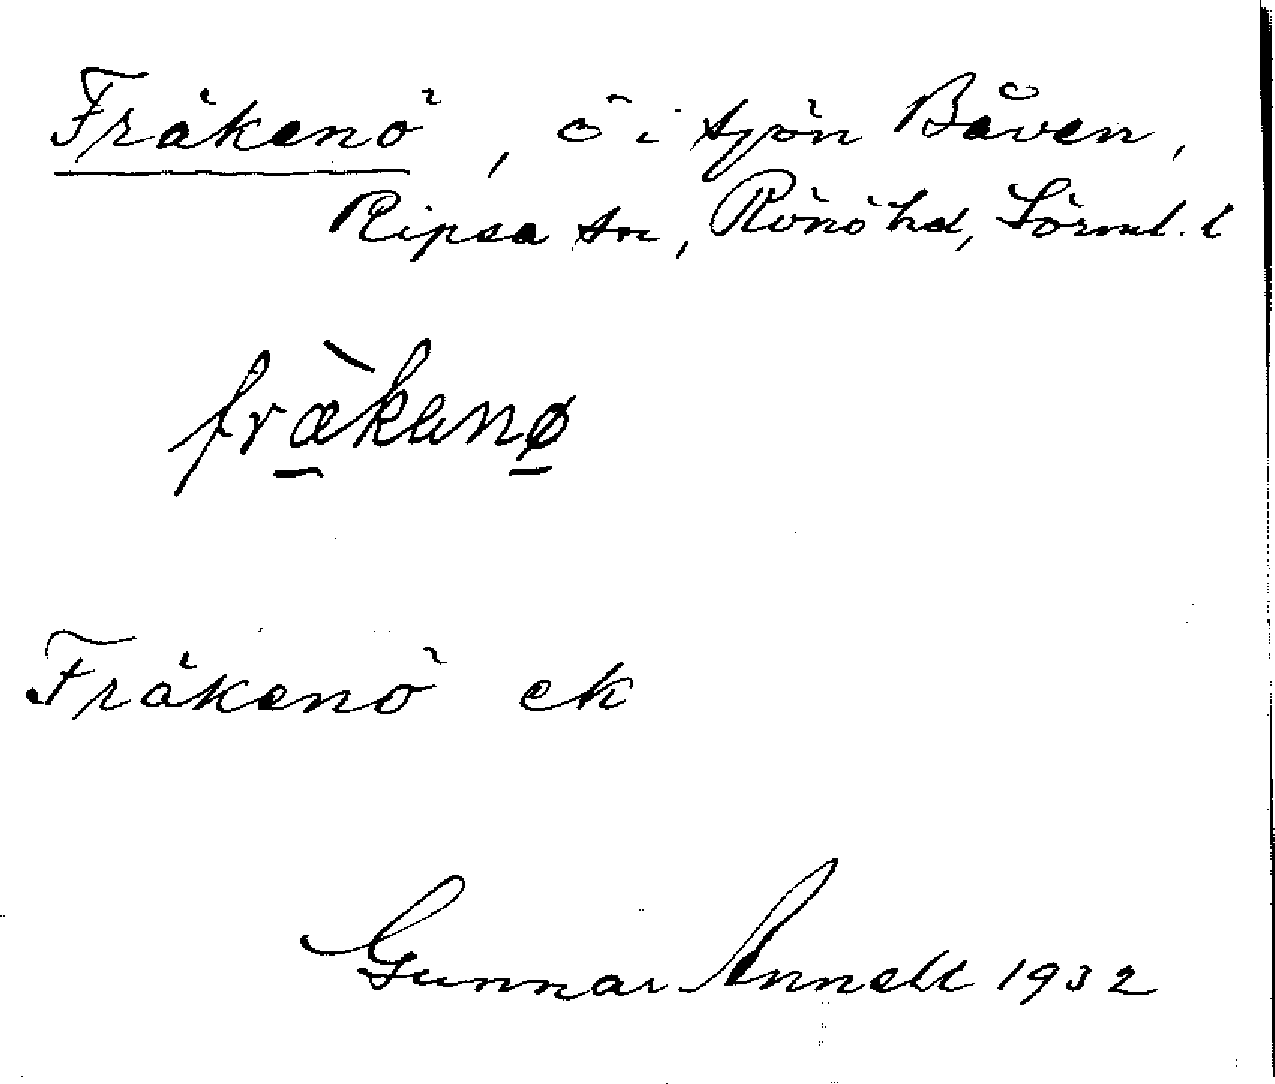 Fräkenö, ö i sjön Båven,
Ripsa sn, Rönö hd, Sörml. l
fræ̀kenø
Fräkenö ek
Gunnar Annell 1932